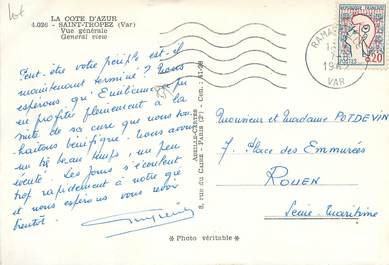 lot
LA COTE D'AZUR
4.026 - SAINT-TROPEZ (Var)
Vue générale
General view
Peut-être votre périple est-il
maintenant terminé ? Nous
espérons qu'
en profité pleinement à la
mité de sa cure que nous
haitons bénéfique. Nous avons
un très beau temps, un peu
venté. Les jours s'écoulent
trop rapidement à notre gré
et nous espérons vous revoir
bientôt.
PARIS (2e)
RÉPUBLIQUE FRANÇAISE
0,20
POSTES
VAR
Monsieur et Madame POTDEVIN
7, Place des Emmurées
ROUEN
Seine Maritime
* Photo véritable *